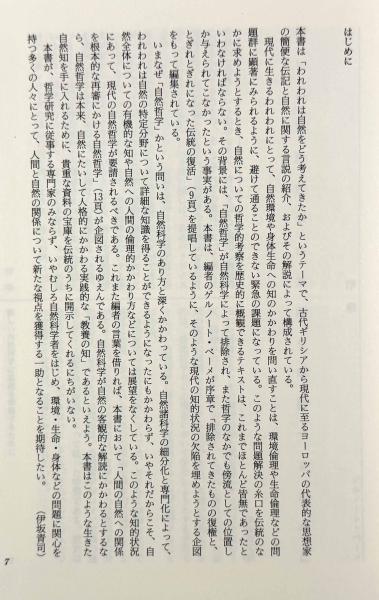 はじめに
本書は「われわれは自然をどう考えてきたか」というテーマで、古代ギリシアから現代に至るヨーロッパの代表的な思想家
の簡便な伝記と自然に関する言説の紹介、およびその解説によって構成されている。
現代に生きるわれわれにとって、自然環境や身体生命への知のかかわりを問い直すことは、環境倫理や生命倫理などの問
題群に顕著にみられるように、避けて通ることのできない緊急の課題になっている。このような問題解決の糸口を伝統のな
かに求めようとするとき、自然についての哲学的考察を歴史的に概観できるテキストは、これまでほとんど皆無であったと
いわなければならない。その背景には、「自然哲学」が自然科学によって排除され、また哲学のなかでも傍流としての位置し
か与えられてこなかったという事実がある。本書は、編者のゲルノート・ベーメが序章で「排除されてきたものの復権と、
とぎれとぎれになった伝統の復活」(9頁)を提唱しているように、そのような現代の知的状況の欠陥を埋めようとする企図
をもって編集されている。
いまなぜ「自然哲学」かという問いは、自然科学のあり方と深くかかわっている。自然諸科学の細分化と専門化によって、
われわれは自然の特定分野について詳細な知識を得ることができるようになったにもかかわらず、いやそれだからこそ、自
然全体についての有機的な知や自然への人間の倫理的かかわり方などについては展望をなくしている。このような知的状況
にあって、現代の自然哲学が要請されるべきである。これまた編者の言葉を借りれば、本書において「人間の自然への関係
を根本的な再審にかける自然哲学」(13頁)が企図されるゆえんである。自然科学が自然の客観的な解読にかかわるとするな
ら、自然哲学は本来、自然にたいして人格的にかかわる実践的な「教養の知」であるといえよう。本書はこのような生きた
自然知を手に入れるために、貴重な資料の宝庫を伝統のうちに開示してくれるにちがいない。
本書が、哲学研究に従事する専門家のみならず、いやむしろ自然科学者をはじめ、環境・生命・身体などの問題に関心を
持つ多くの人々にとって、人間と自然の関係について新たな視点を獲得する一助となることを期待したい。
(伊坂青司)
7